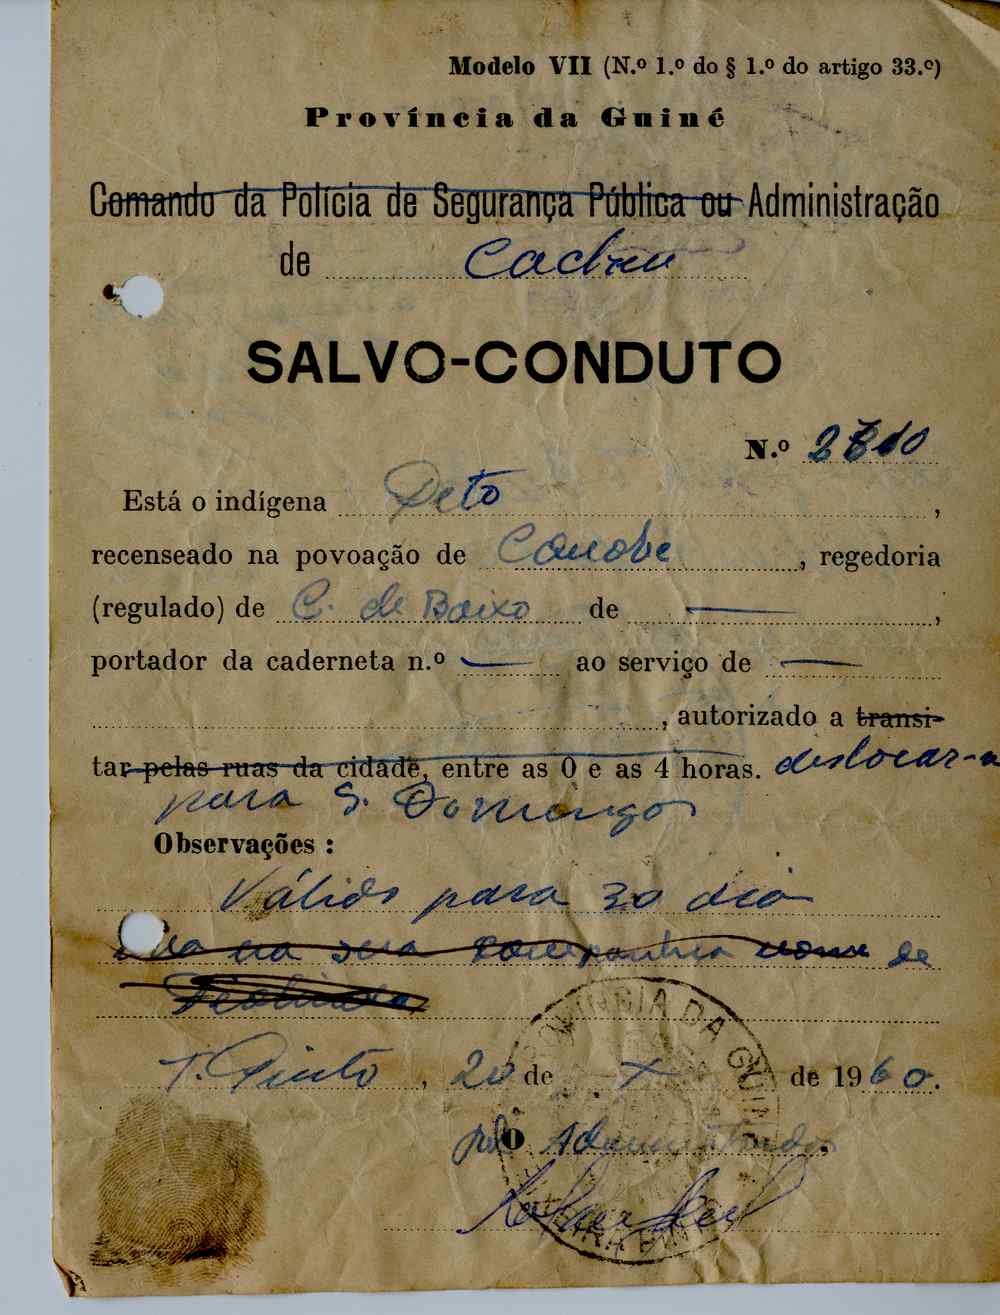 Modelo VII (N.º 1.º do § 1.º do artigo 33.º)
Província da Guiné
Comando da Polícia de Segurança Pública ou Administração
de Cacheu
SALVO-CONDUTO
N.º
Está o indígena Peto,
recenseado na povoação de Canobe, regedoria
(regulado) de C. de Baixo de —,
portador da caderneta n.º — ao serviço de —
, autorizado a transi-
tar pelas ruas da cidade, entre as 0 e as 4 horas. deslocar-
para S. Domingos
Observações :
Válido para 30 dia
na sua companhia nome de
T. Pinto, 20 de X de 1960.
pelo O Administrador
PROVINCIA DA GUINÉ